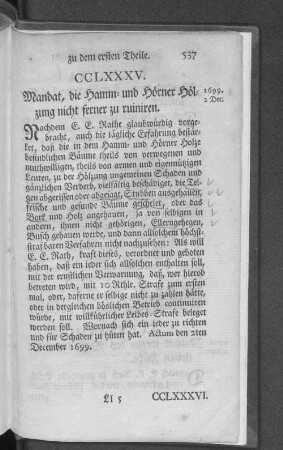 zu dem ersten Theile. 537
CCLXXXV.
Mandat, die Hamm- und Hörner Höl-
zung nicht ferner zu ruiniren.
1699.
2 Dec.
Nachdem E. E. Rathe glaubwürdig vorge-
bracht, auch die tägliche Erfahrung bestär-
ket, daß die in dem Hamm- und Hörner Holze
befindlichen Bäume theils von verwegenen und
muthwilligen, theils von armen und eigenmüßigen
Leuten, zu der Hölzung ungemeinen Schaden und
gänzlichen Verderb, vielfältig beschädiget, die Tel-
gen abgerissen oder abgesagt, Stubben ausgehauen,
frische und gesunde Bäume geschelet, oder das
Bork und Holz angehauen, ja von selbigen in
andern, ihnen nicht gehörigen, Ellerngehegen,
Busch gehauen werde, und dann allsolchem höchst-
strafbaren Verfahren nicht nachzusehen: Als will
E. E. Rath, kraft dieses, verordnet und geboten
haben, daß ein jeder sich allsolchen enthalten soll,
mit der ernstlichen Verwarnung, daß, wer hierob
betreten wird, mit 10 Rthlr. Strafe zum ersten
mal, oder, daferne er selbige nicht zu zahlen hätte,
oder in dergleichen böslichen Betrieb continuiren
würde, mit willkührlicher Leibes-Strafe beleget
werden soll. Wornach sich ein jeder zu richten
und für Schaden zu hüten hat. Actum den 2ten
December 1699.
Ll 5 CCLXXXVI.